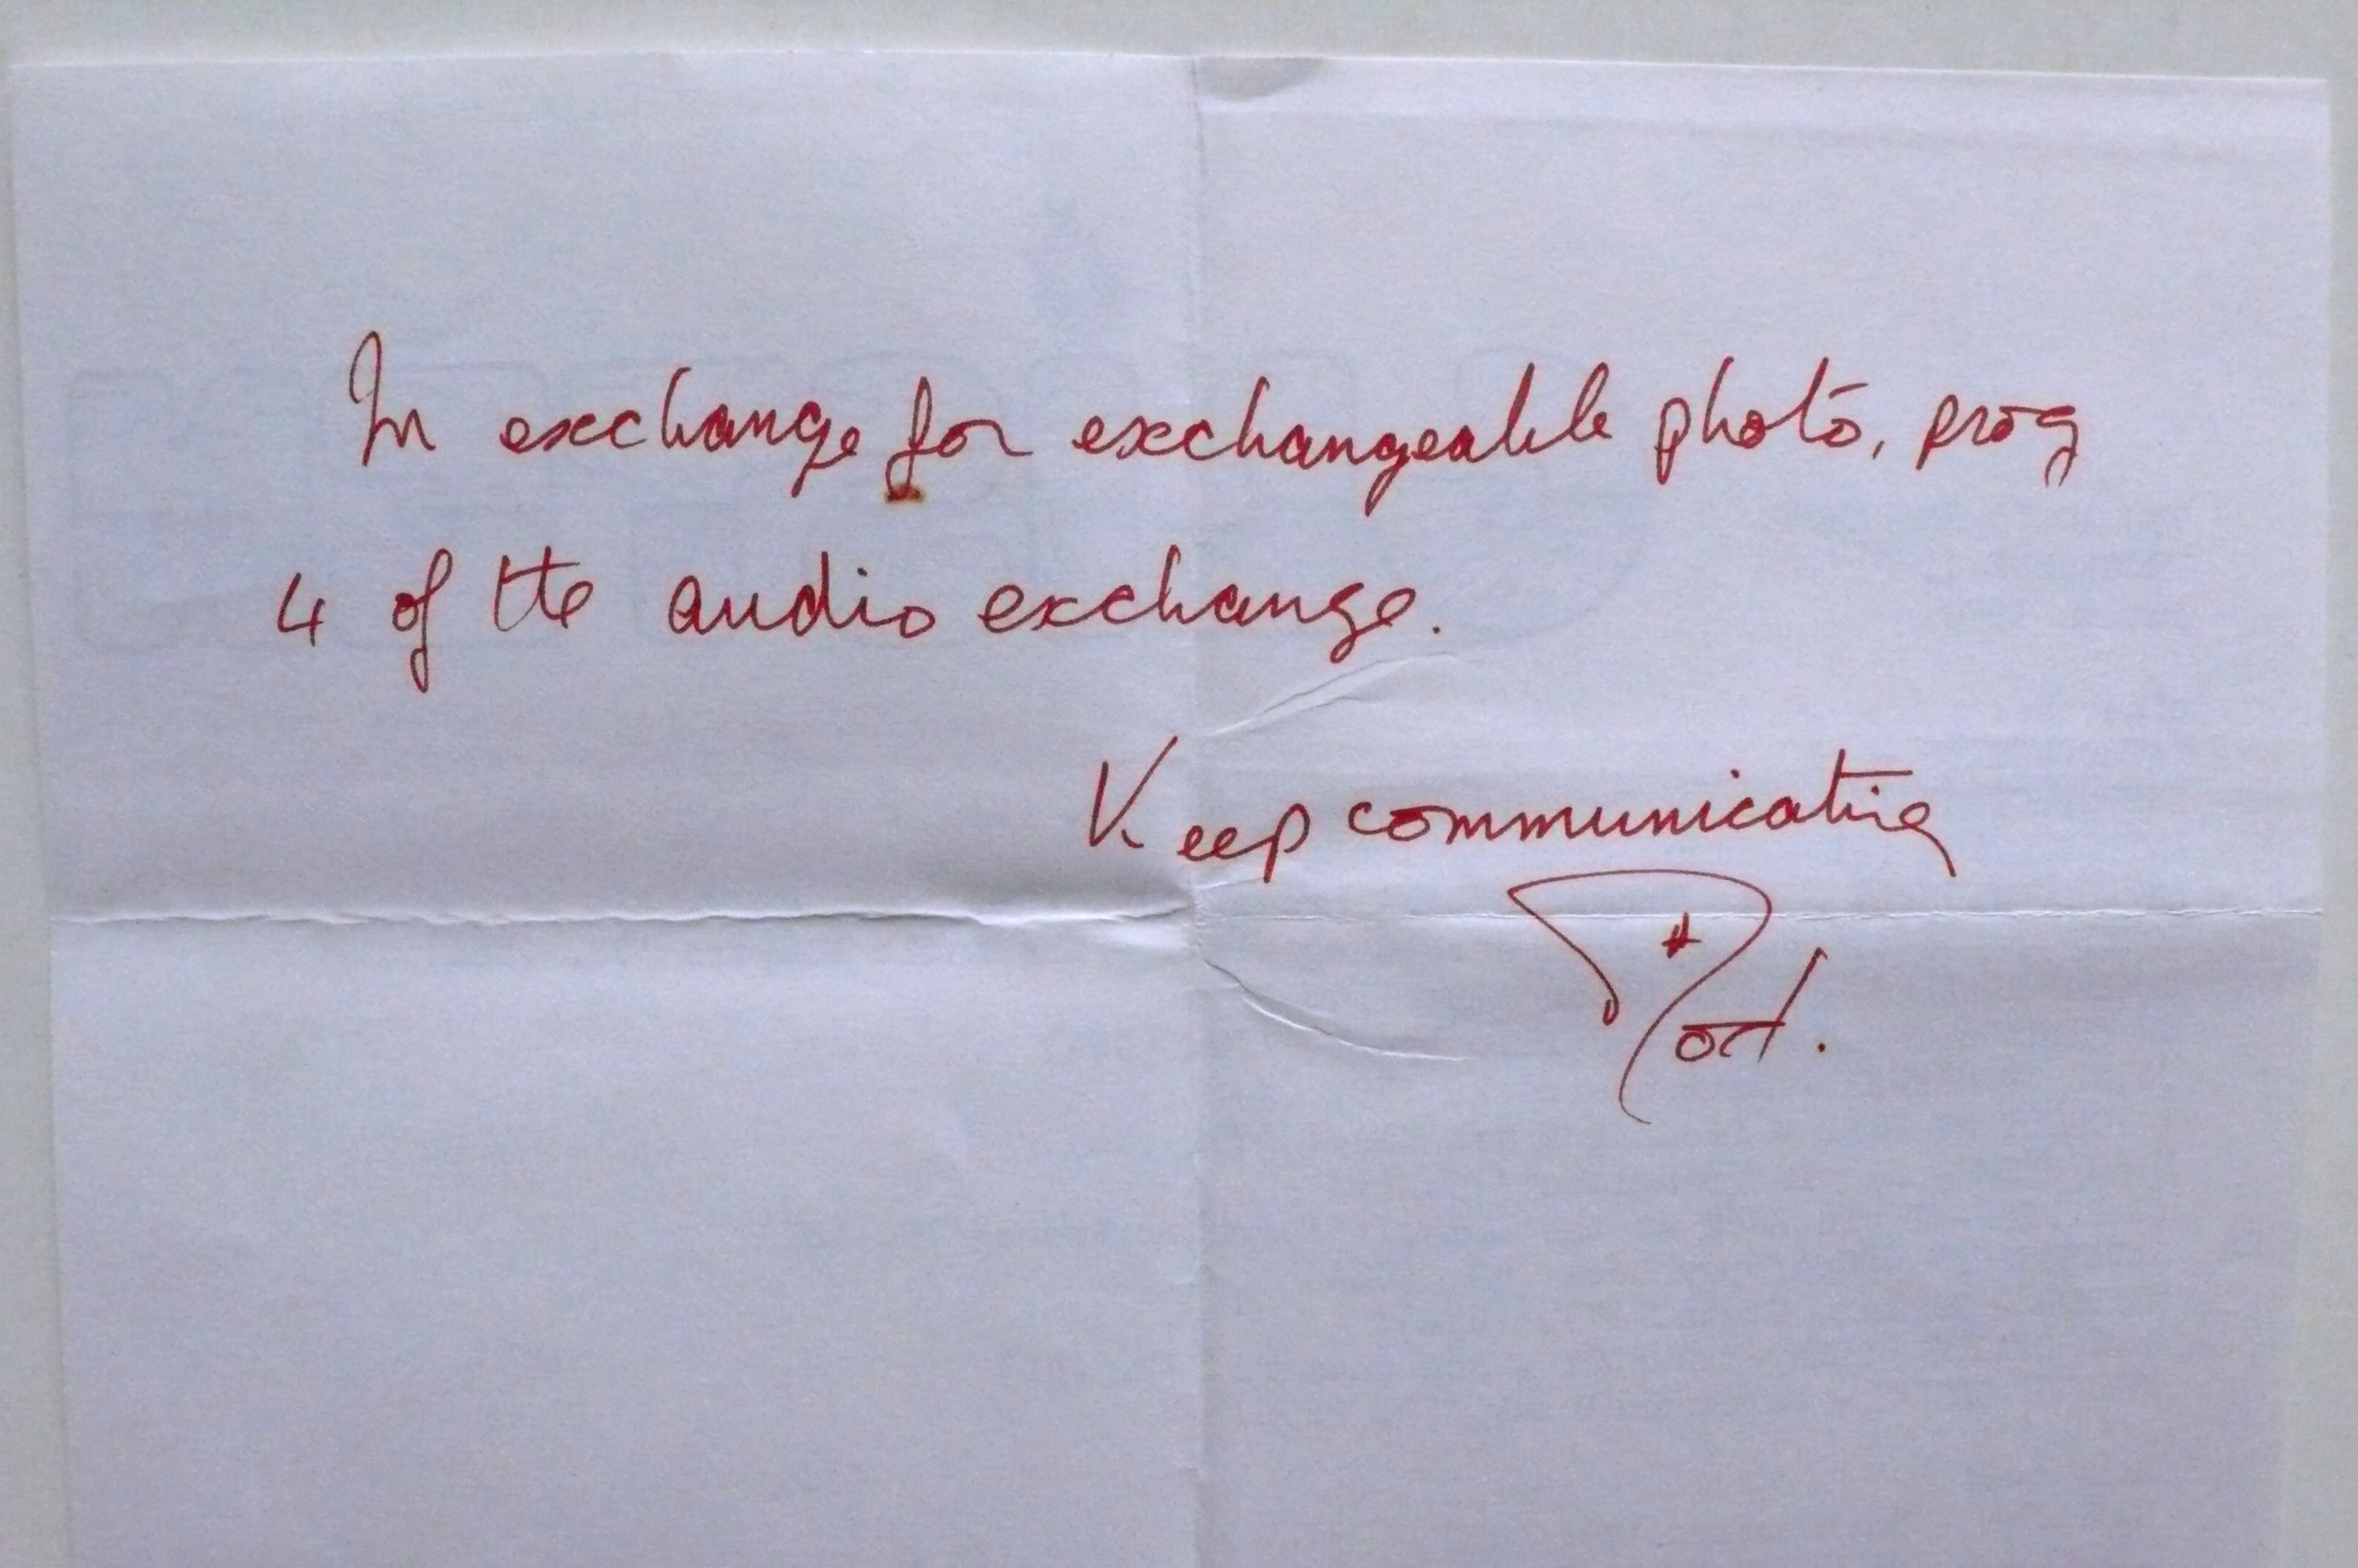 In exchange for exchangeable photo, prog
4 of the audio exchange.
Keep communicating